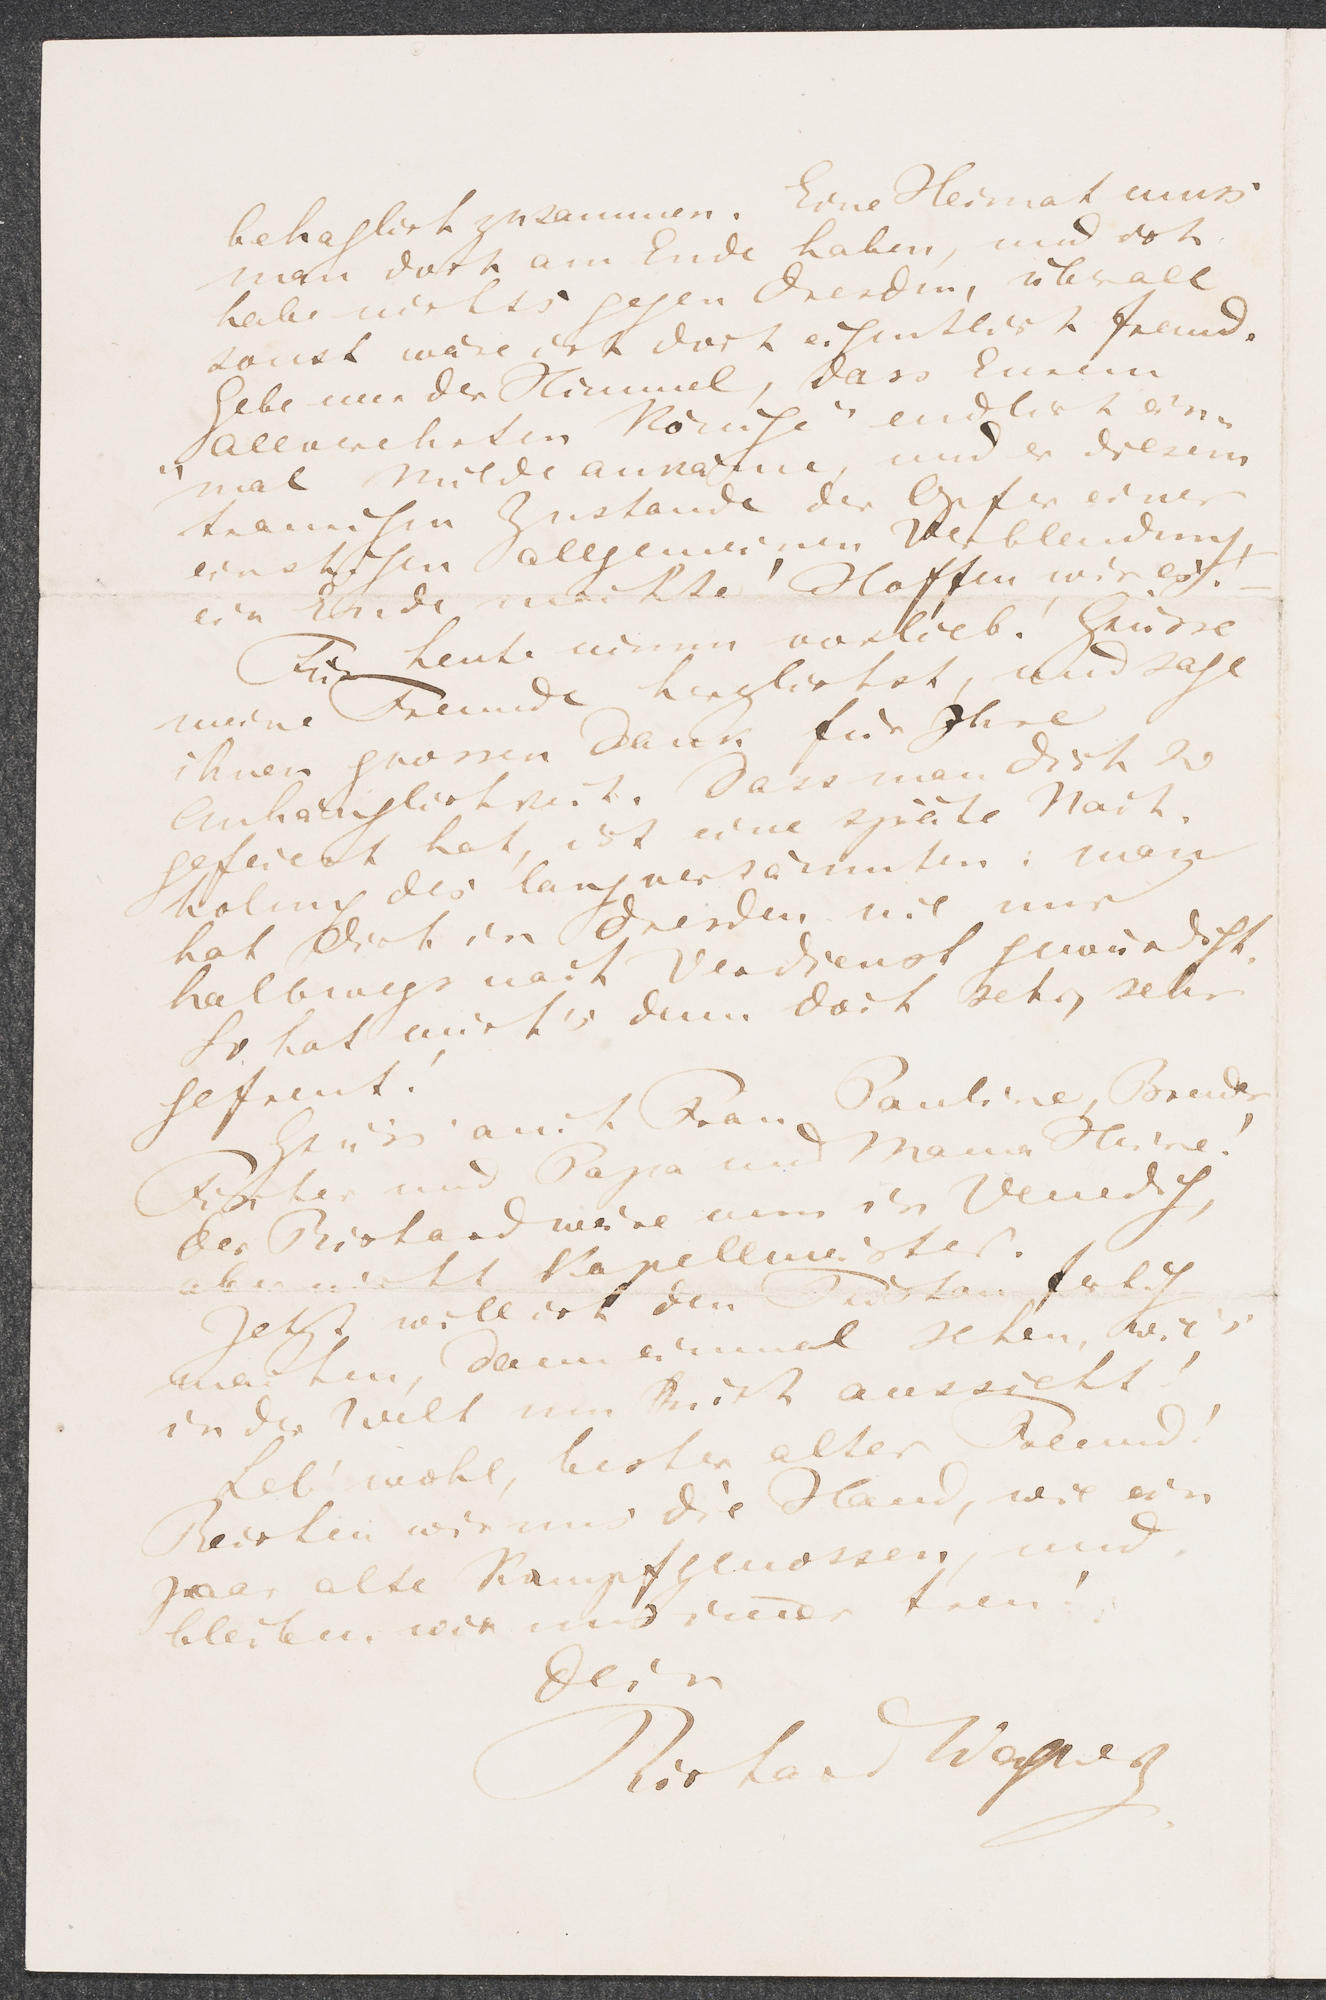 behaglich zusammen. Eine Heimat muss
man doch am Ende haben, und ich
habe nichts gegen Dresden, überall
sonst wäre ich doch eigentlich fremd.
Gebe nur der Himmel, dass Eurem
allverehrten Könige" endlich ein,,
"mal Milde ankäme, und er diesem
traurigen Zustande der Opfer einer
einstigen allgemeinen Verblendung,
ein Ende machte! Hoffen wir es! —
Für heute nimm vorlieb! Grüsse
meine Freunde herzlichst, und sage
ihnen grossen Dank für Ihre
Anhänglichkeit. Dass man Dich so
gefeiert hat, ist eine späte Nach-
holung des lang versäumten: man
hat Dich in Dresden nie nur
halbwegs nach Verdienst gewürdigt.
So hat mich's denn doch sehr, sehr
gefreut!
Grüss' auch Frau Pauline, Bruder
Fischer und Papa und Mama Heine!
Der Richard wäre nun in Venedig,
aber nicht Kapellmeister.
Jetzt will ich den Tristan fertig
machen, dann einmal sehen, wie's
in der Welt um mich aussieht!
Leb' wohl, bester alter Freund!
Reichen wir uns die Hand, wie ein
paar alte Kampfgenossen, und
bleiben wir uns im̄er treu!
Dein
Richard Wagner